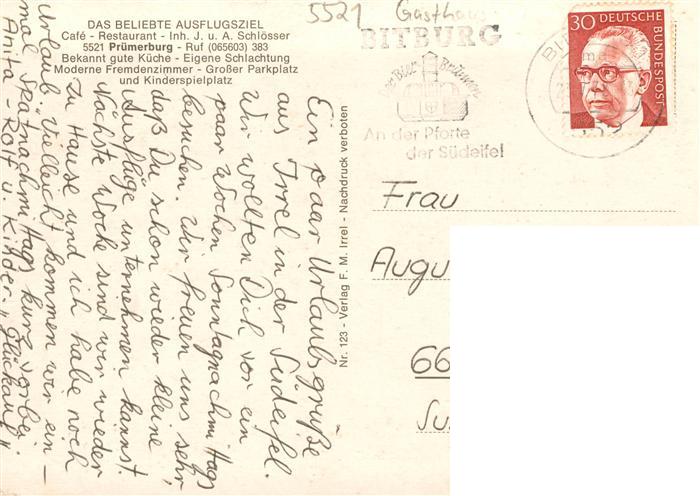 DAS BELIEBTE AUSFLUGSZIEL
Café - Restaurant - Inh. J. u. A. Schlösser
5521 Prümerburg - Ruf (065603) 383
Bekannt gute Küche - Eigene Schlachtung
Moderne Fremdenzimmer - Großer Parkplatz
und Kinderspielplatz
Ein paar Urlaubsgrüße
aus Irrel in der Südeifel.
Wir wollten Dich vor ein
paar Wochen Sonntagnachm/tags
besuchen. Wir freuen uns sehr,
daß Du schon wieder kleine
Ausflüge unternehmen kannst.
Nächste Woche sind wir wieder
zu Hause und ich habe noch
Urlaub. Vielleicht kommen wir ein-
mal Spätnachm/tags kurz vorbei.
Anita - Rolf u. Kinder "Glückauf"
Nr. 123 - Verlag F. M. Irrel - Nachdruck verboten
5521 Gasthaus
BITBURG
An der Pforte
der Südeifel
30 DEUTSCHE
BUNDESPOST
Frau
Augu
66
Su